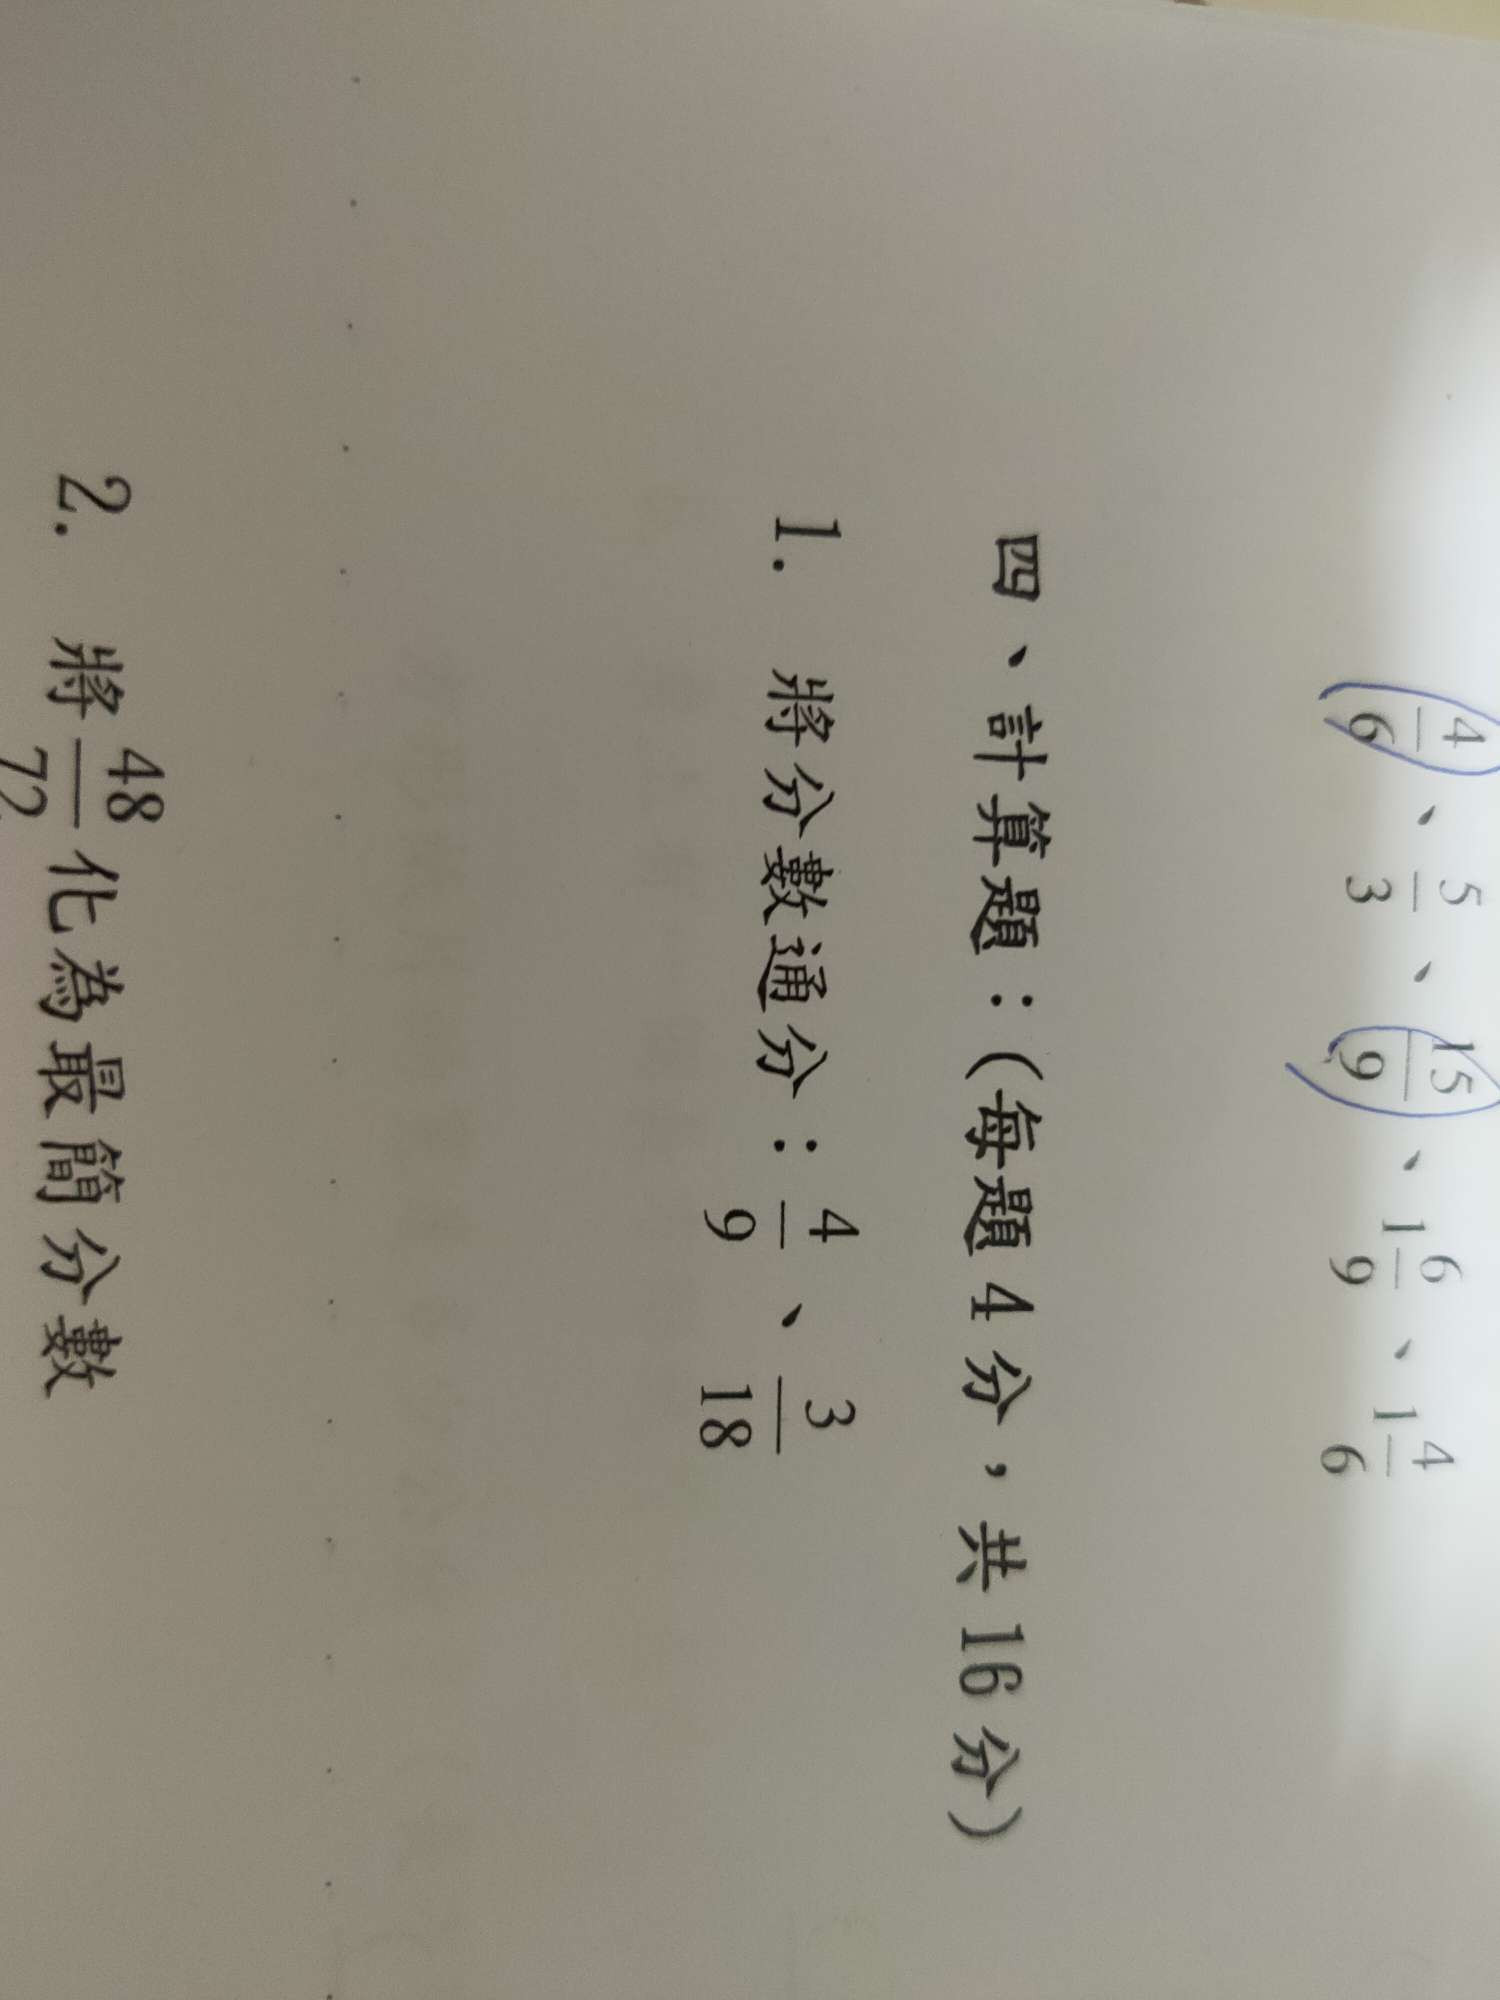 4/6、5/3、15/9、1 6/9、1 4/6
四、計算題：(每題4分，共16分)
1. 將分數通分：4/9、3/18
2. 將48/72化為最簡分數